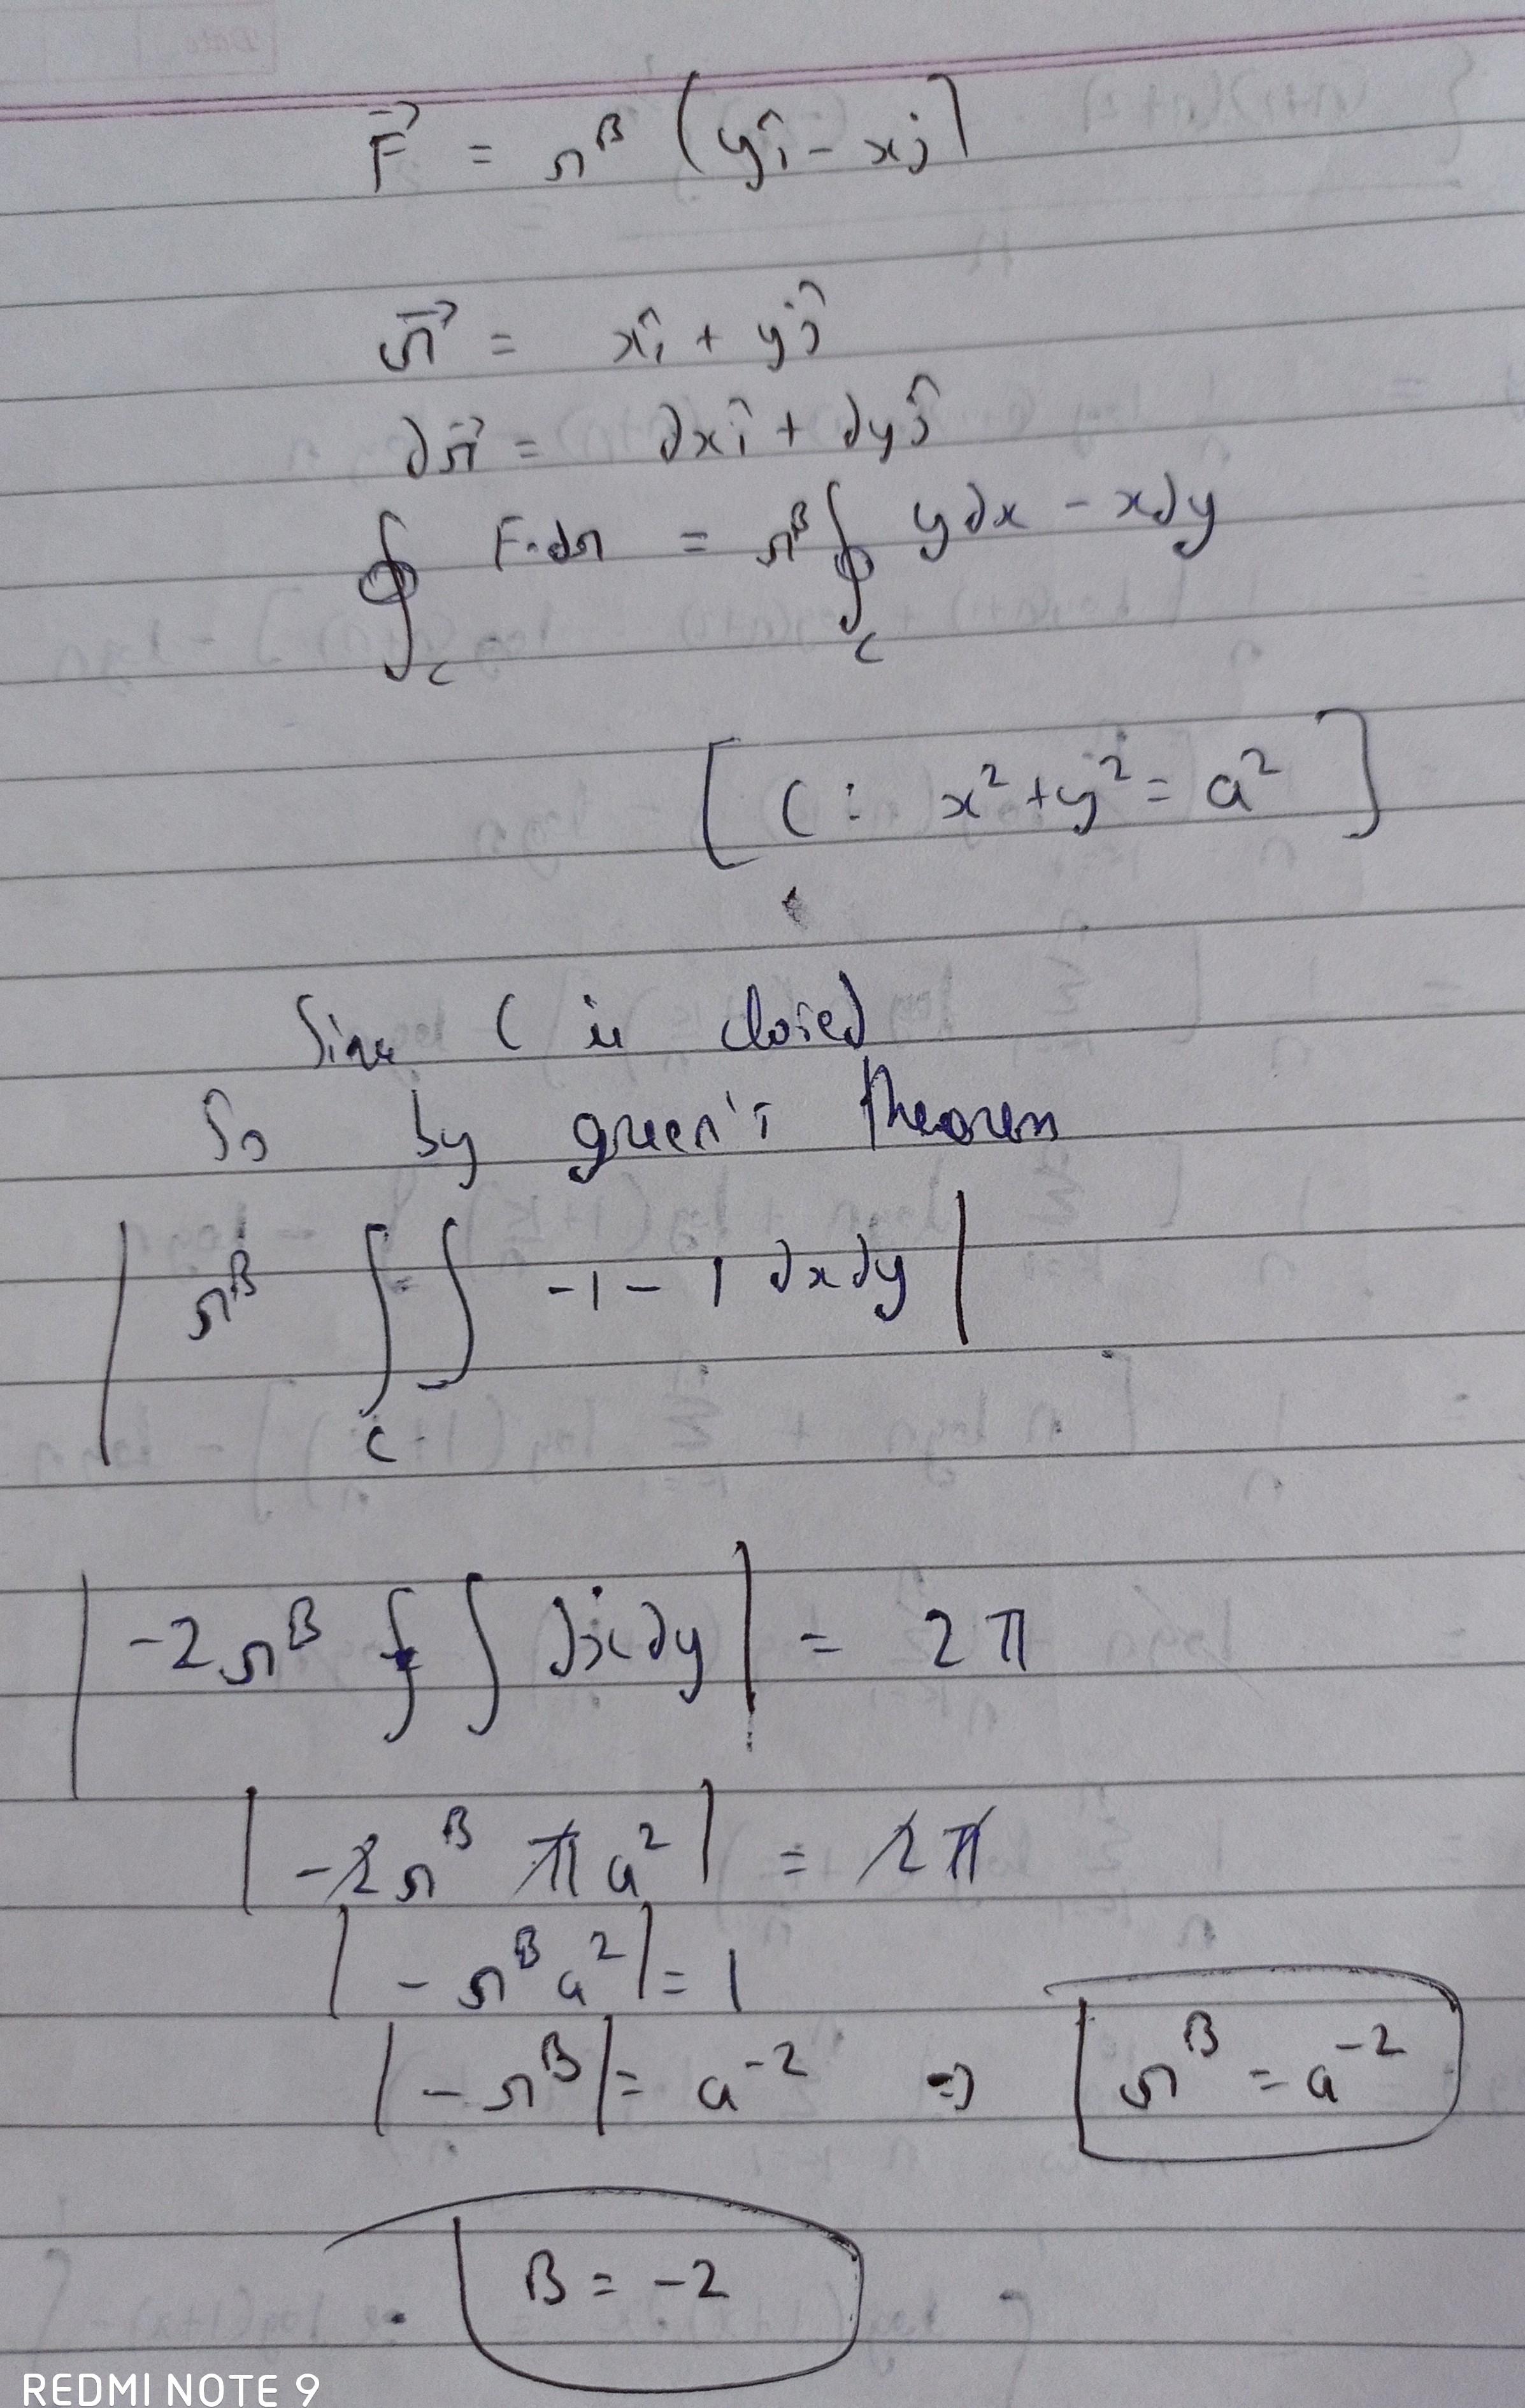 F⃗ = r^β (yî - xĵ)
r⃗ = xî + yĵ
dr⃗ = dxî + dyĵ
∮_C F·dr = r^β ∮_C ydx - xdy
[C: x² + y² = a²]
Since C is closed
So by green's theorem
| r^β ∫∫_C -1 - 1 dxdy |
| -2r^β ∫∫ dxdy | = 2π
| -2r^β πa² | = 2π
| -r^β a² | = 1
| -r^β | = a^-2 ⇒ r^β = a^-2
β = -2
REDMI NOTE 9